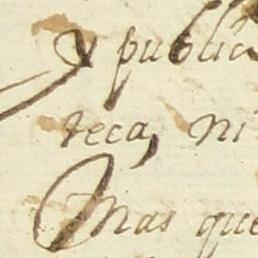 y public
teca, ni
Mas que